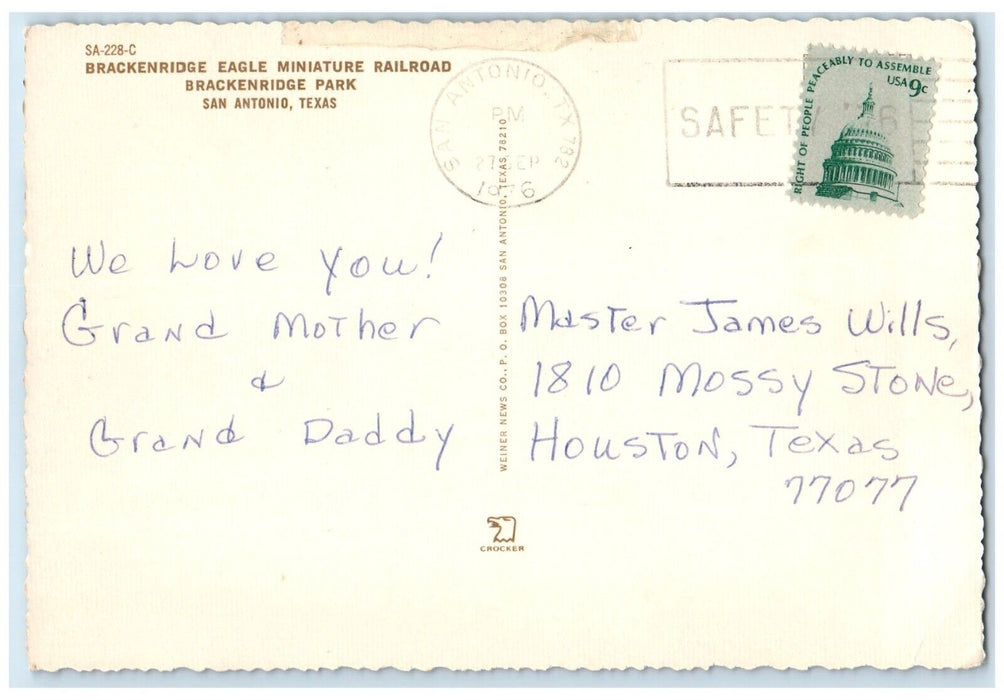 SA-228-C
BRACKENRIDGE EAGLE MINIATURE RAILROAD
BRACKENRIDGE PARK
SAN ANTONIO, TEXAS
SAN ANTONIO, TX 782
PM
27 SEP
1976
SAFETY '76
RIGHT OF PEOPLE PEACEABLY TO ASSEMBLE
USA 9c
We Love You!
Grand Mother
&
Grand Daddy
WEINER NEWS CO., P. O. BOX 10308 SAN ANTONIO, TEXAS, 78210
Master James Wills,
1810 Mossy Stone,
Houston, Texas
77077
CROCKER